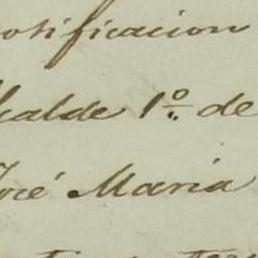 otificacion
lcalde 1º de
José Maria